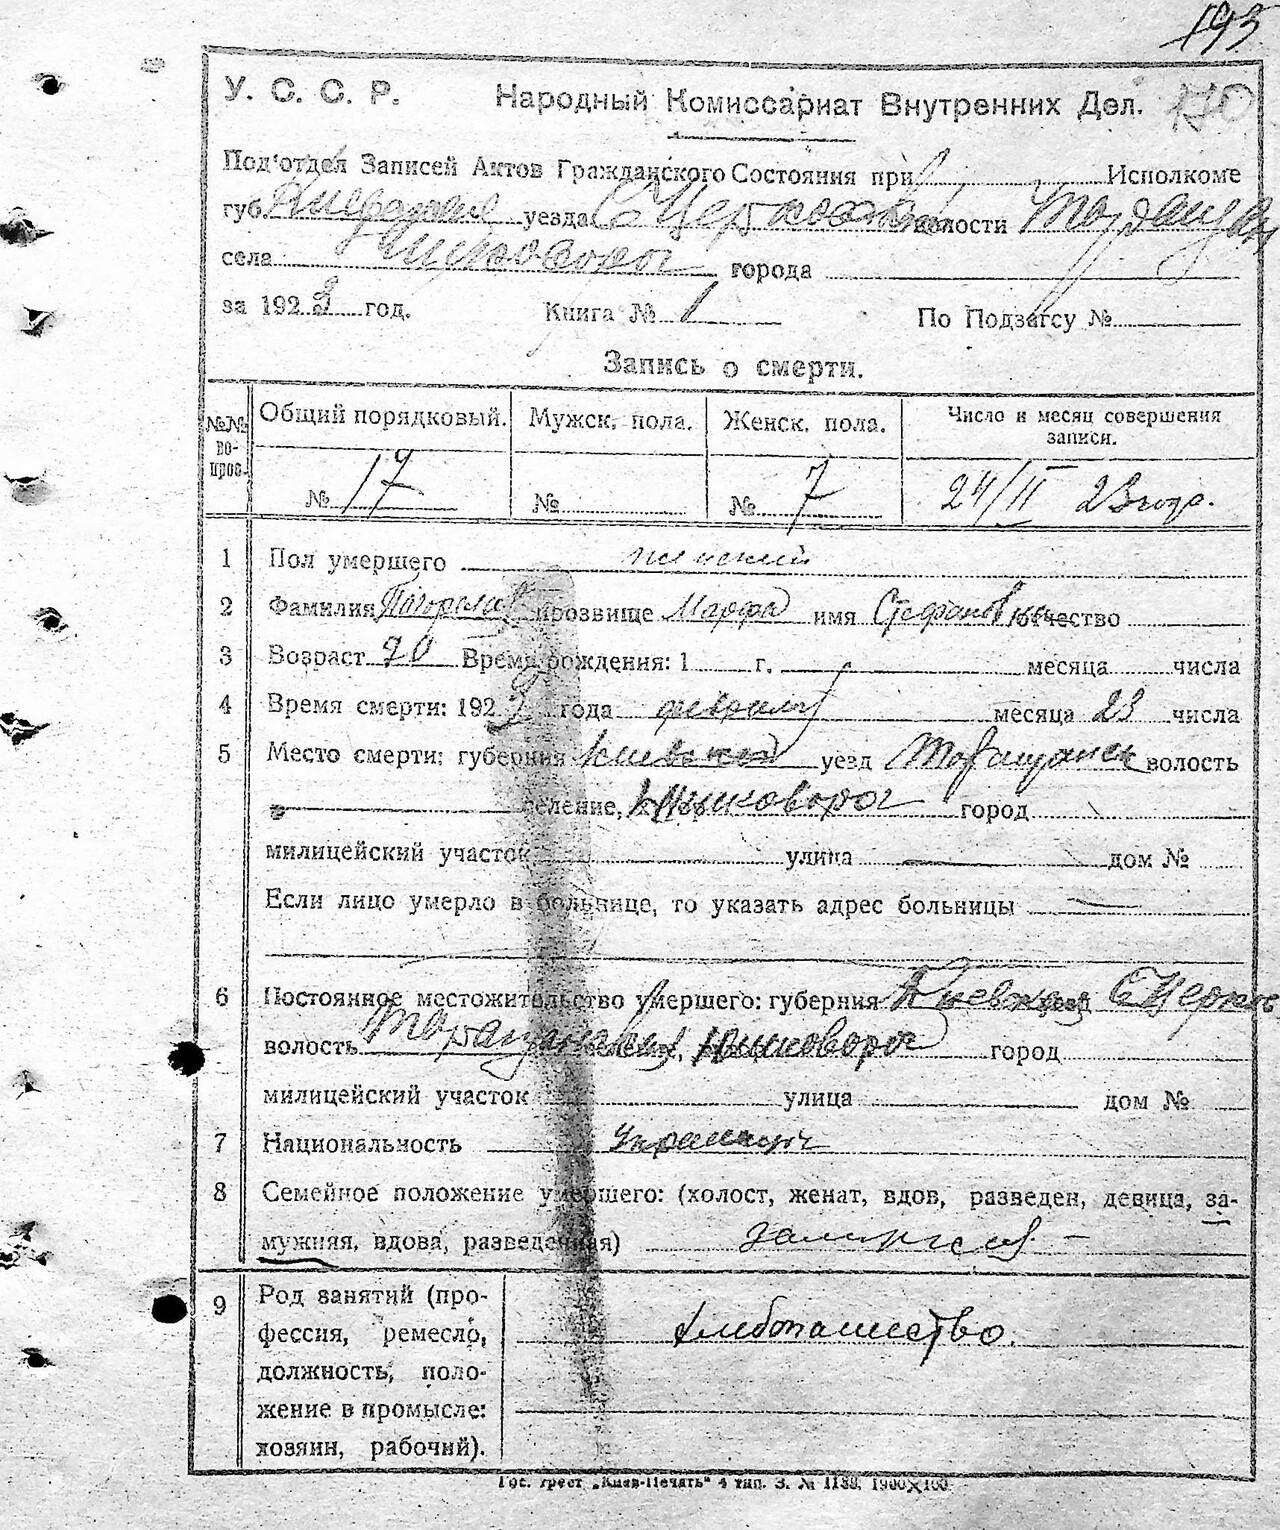 193
У. С. С. Р. Народный Комиссариат Внутренних Дел.
Под'отдел Записей Актов Гражданского Состояния при Исполкоме
губ. уезда Б Церковской волости Таращан
села города
за 1923 год. Книга № 1 По Подзагсу №
Запись о смерти.
№№ вопрос.
Общий порядковый. Мужск. пола. Женск. пола. Число и месяц совершения записи.
№ 17 № № 7 24/II 23 года.
1 Пол умершего женский
2 Фамилия прозвище Марфа имя Стефановна отчество
3 Возраст 70 Время рождения: 1 г. месяца числа
4 Время смерти: 1923 года февраля месяца 23 числа
5 Место смерти: губерния Киевская уезд Таращанск волость
селение, город
милицейский участок улица дом №
Если лицо умерло в больнице, то указать адрес больницы
6 Постоянное местожительство умершего: губерния Киевская уезд Б Церков
волость Таращанская селение, город
милицейский участок улица дом №
7 Национальность
8 Семейное положение умершего: (холост, женат, вдов, разведен, девица, за-
мужняя, вдова, разведенная) замужняя
9 Род занятий (про-
фессия, ремесло,
должность, поло-
жение в промысле:
хозяин, рабочий).
хлебопашество.
Гос. трест „Киев-Печать“ 4 тип. З. № 1138, 1900×100